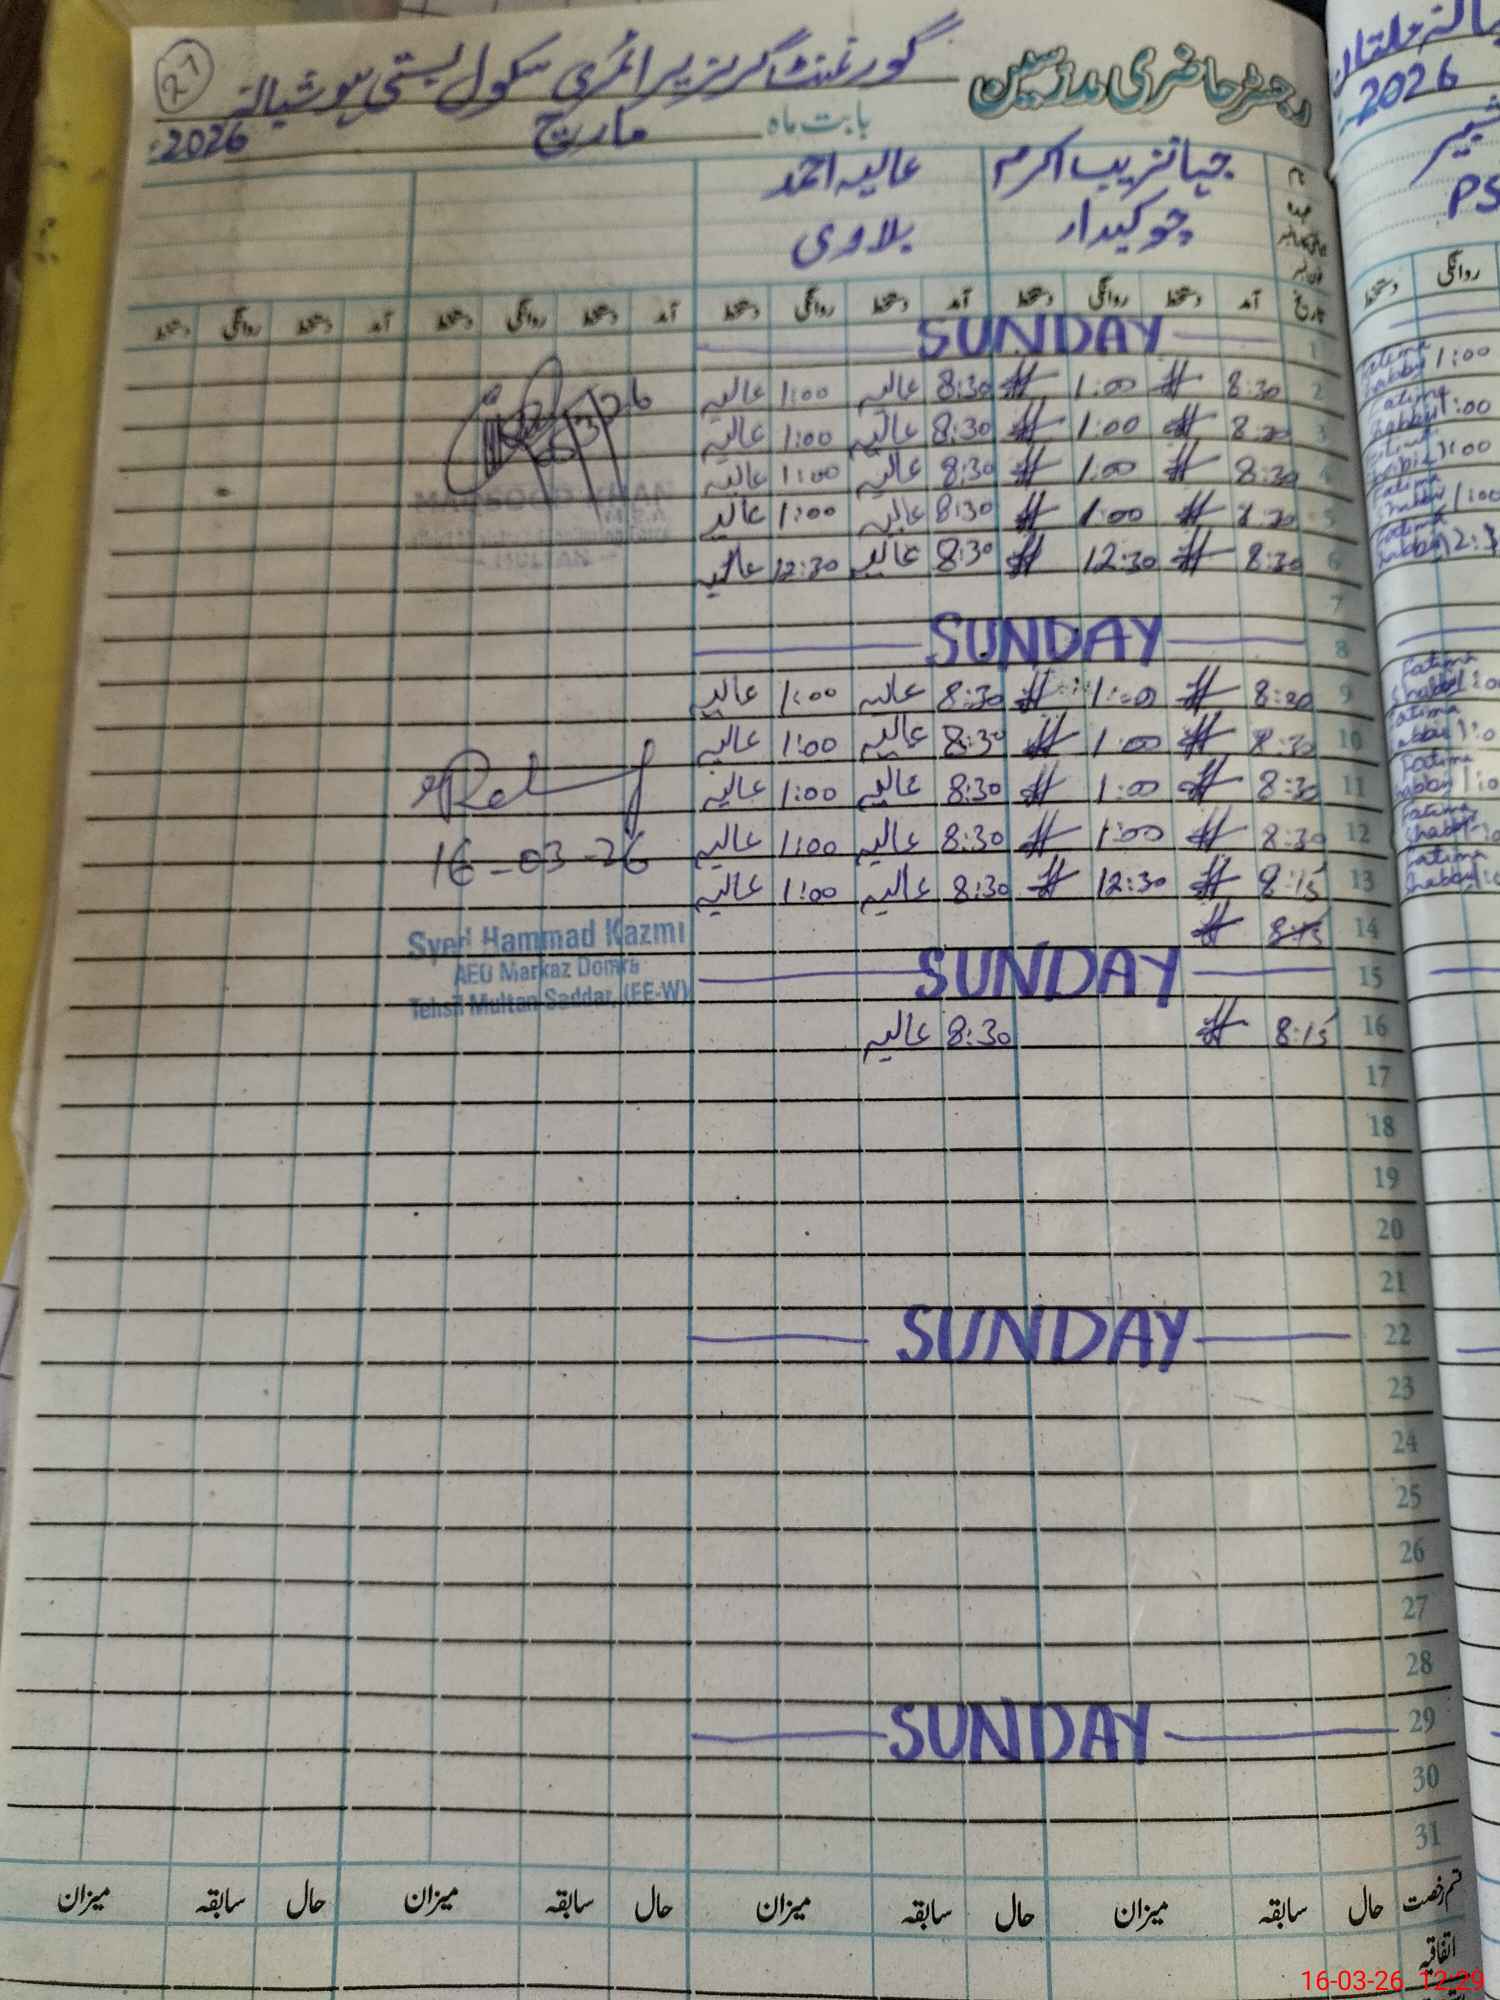 21
رجسٹر حاضری مدرسین گورنمنٹ گرلز پرائمری سکول بستی ہوشیالہ
بابت ماہ مارچ 2026ء
جہانزیب اکرم عالیہ احمد
چوکیدار بلاوی
تاریخ آمد دستخط روانگی دستخط آمد دستخط روانگی دستخط آمد دستخط روانگی دستخط آمد دستخط روانگی دستخط
1 SUNDAY
2 8:30 1:00 8:30 عالیہ 1:00 عالیہ
3 8:30 1:00 8:30 عالیہ 1:00 عالیہ
4 8:30 1:00 8:30 عالیہ 1:00 عالیہ
5 8:30 1:00 8:30 عالیہ 1:00 عالیہ
6 8:30 12:30 8:30 عالیہ 12:30 عالیہ
7
8 SUNDAY
9 8:30 1:00 8:30 عالیہ 1:00 عالیہ
10 8:30 1:00 8:30 عالیہ 1:00 عالیہ
11 8:30 1:00 8:30 عالیہ 1:00 عالیہ
12 8:30 1:00 8:30 عالیہ 1:00 عالیہ
13 8:15 12:30 8:30 عالیہ 1:00 عالیہ
14 8:15
15 SUNDAY
16 8:15 8:30 عالیہ
17
18
19
20
21
22 SUNDAY
23
24
25
26
27
28
29 SUNDAY
30
31
MULTAN
16-03-26
Syed Hammad Kazmi
AEO Markaz Domra
Tehsil Multan Saddar, (EE-W)
قسم رخصت حال سابقہ میزان حال سابقہ میزان حال سابقہ میزان حال سابقہ میزان
اتفاقیہ
2026
PS
روانگی دستخط
1:00 Fatima
16-03-26 12:29